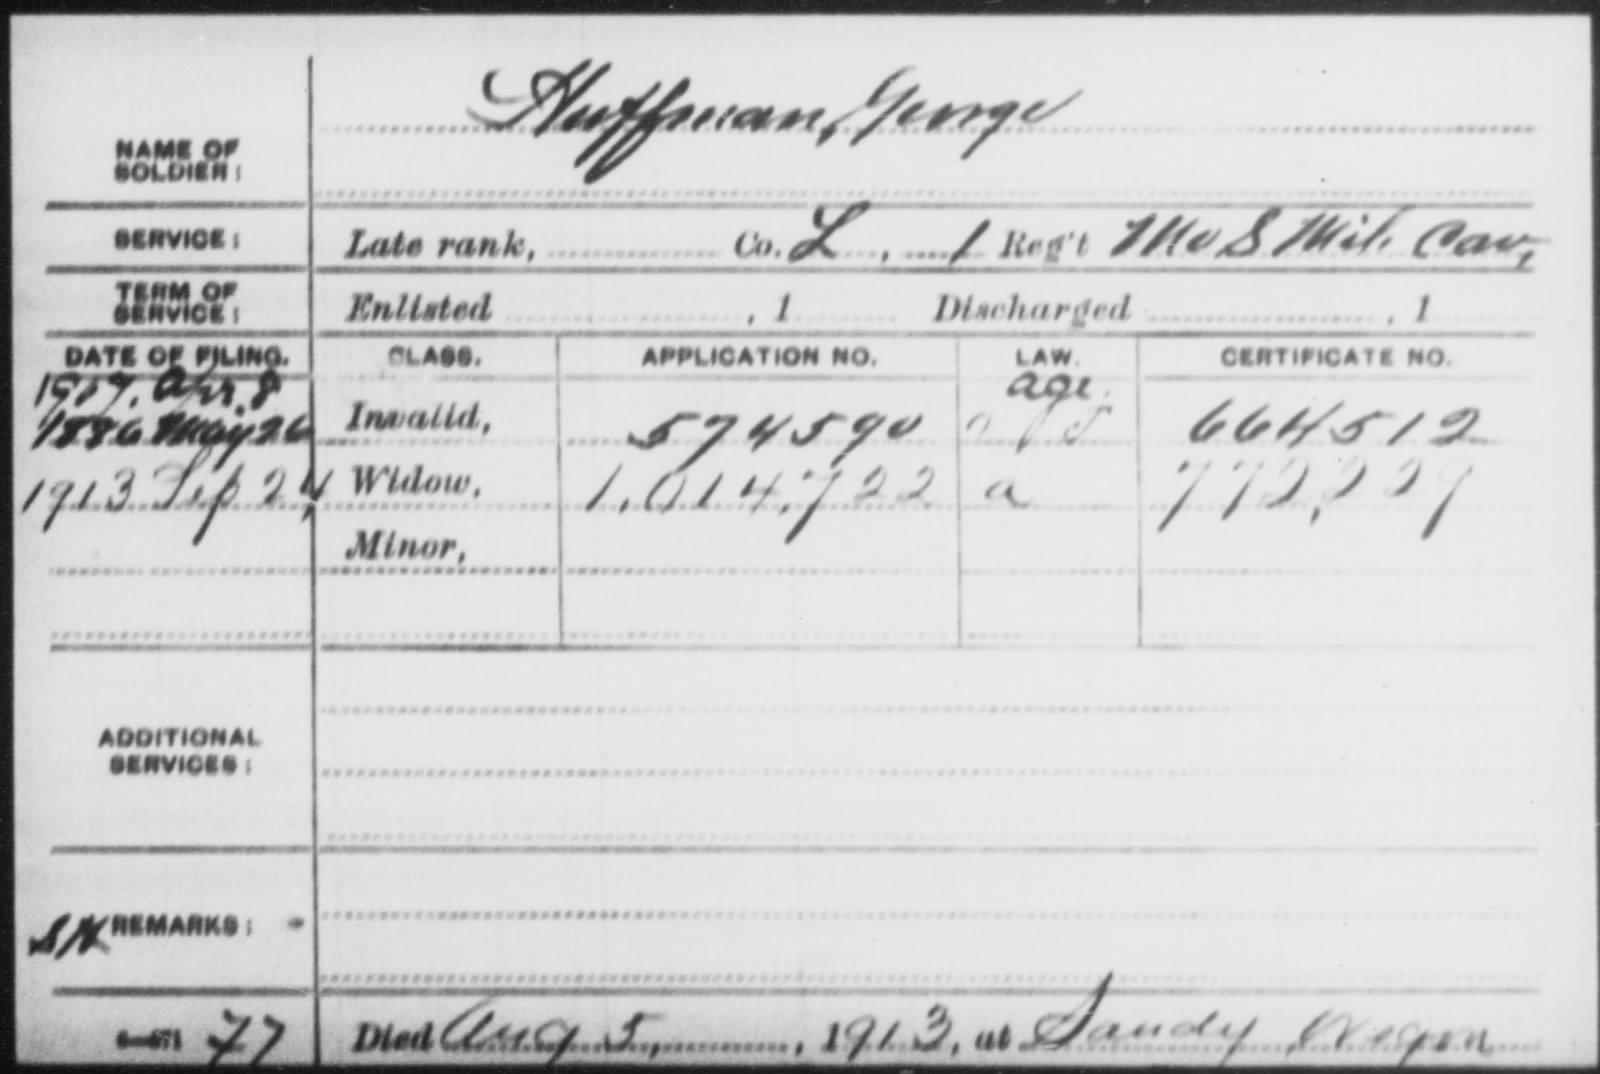 Huffman, George
NAME OF
SOLDIER:
SERVICE: Late rank, Co. L, 1 Reg't Mo S Mil. Cav,
TERM OF
SERVICE: Enlisted , 1 Discharged , 1
DATE OF FILING. CLASS. APPLICATION NO. LAW. CERTIFICATE NO.
1907, Apr. 8 age.
1886 May 26 Invalid, 574590 664512
1913 Sep 24, Widow, 1,014,722 a 772,229
Minor,
ADDITIONAL
SERVICES:
SH REMARKS:
77 Died Aug 5, , 1913, at Sandy Oregon